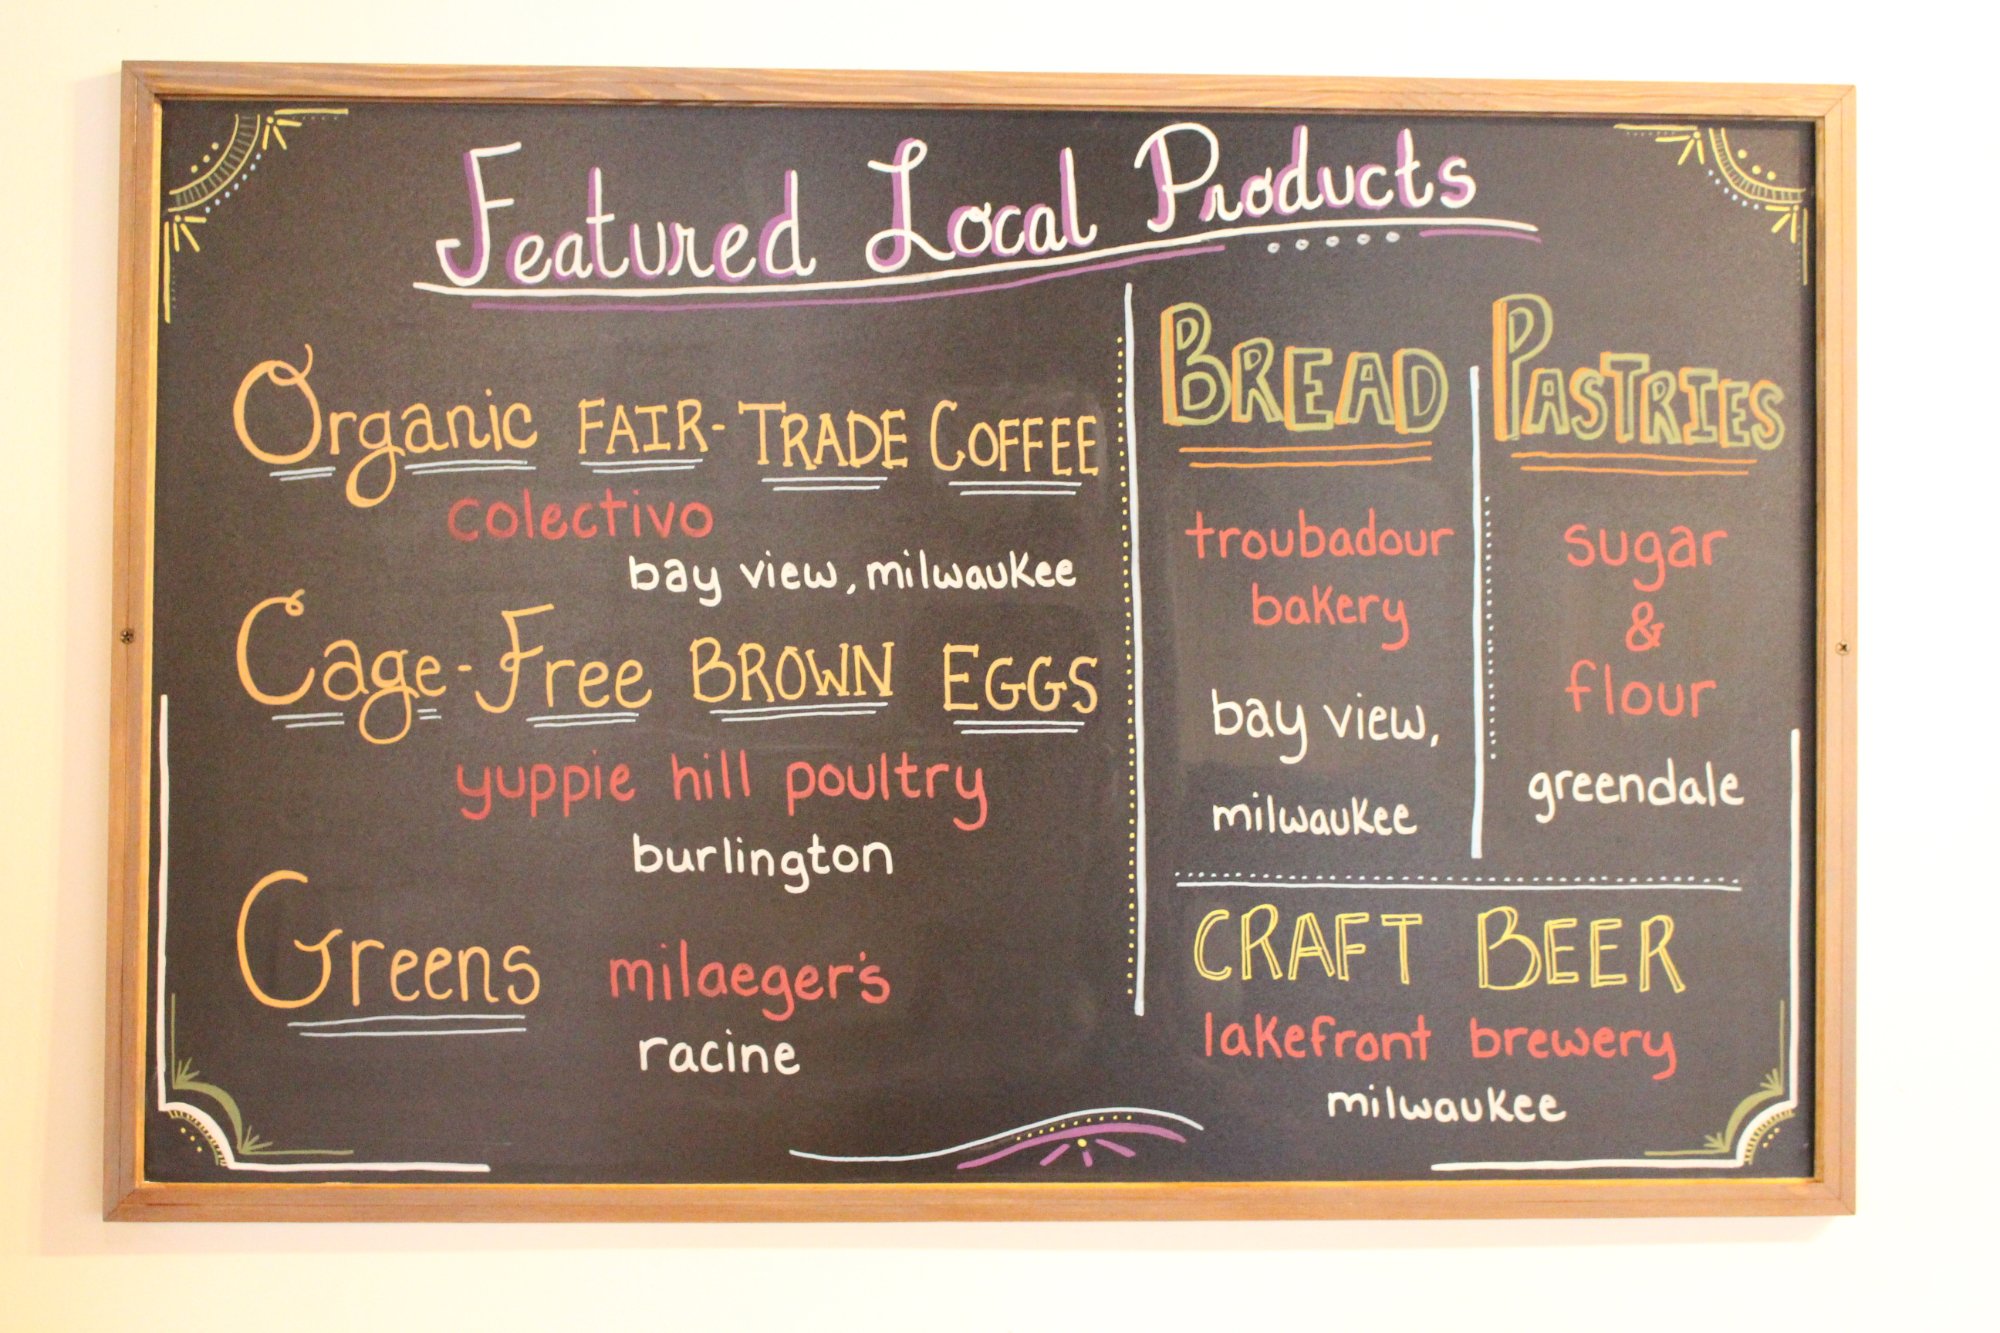 Featured Local Products
Organic FAIR-TRADE COFFEE
colectivo
bay view, milwaukee
Cage-Free BROWN EGGS
yuppie hill poultry
burlington
Greens milaeger's
racine
BREAD
troubadour
bakery
bay view,
milwaukee
PASTRIES
sugar
&
flour
greendale
CRAFT BEER
lakefront brewery
milwaukee